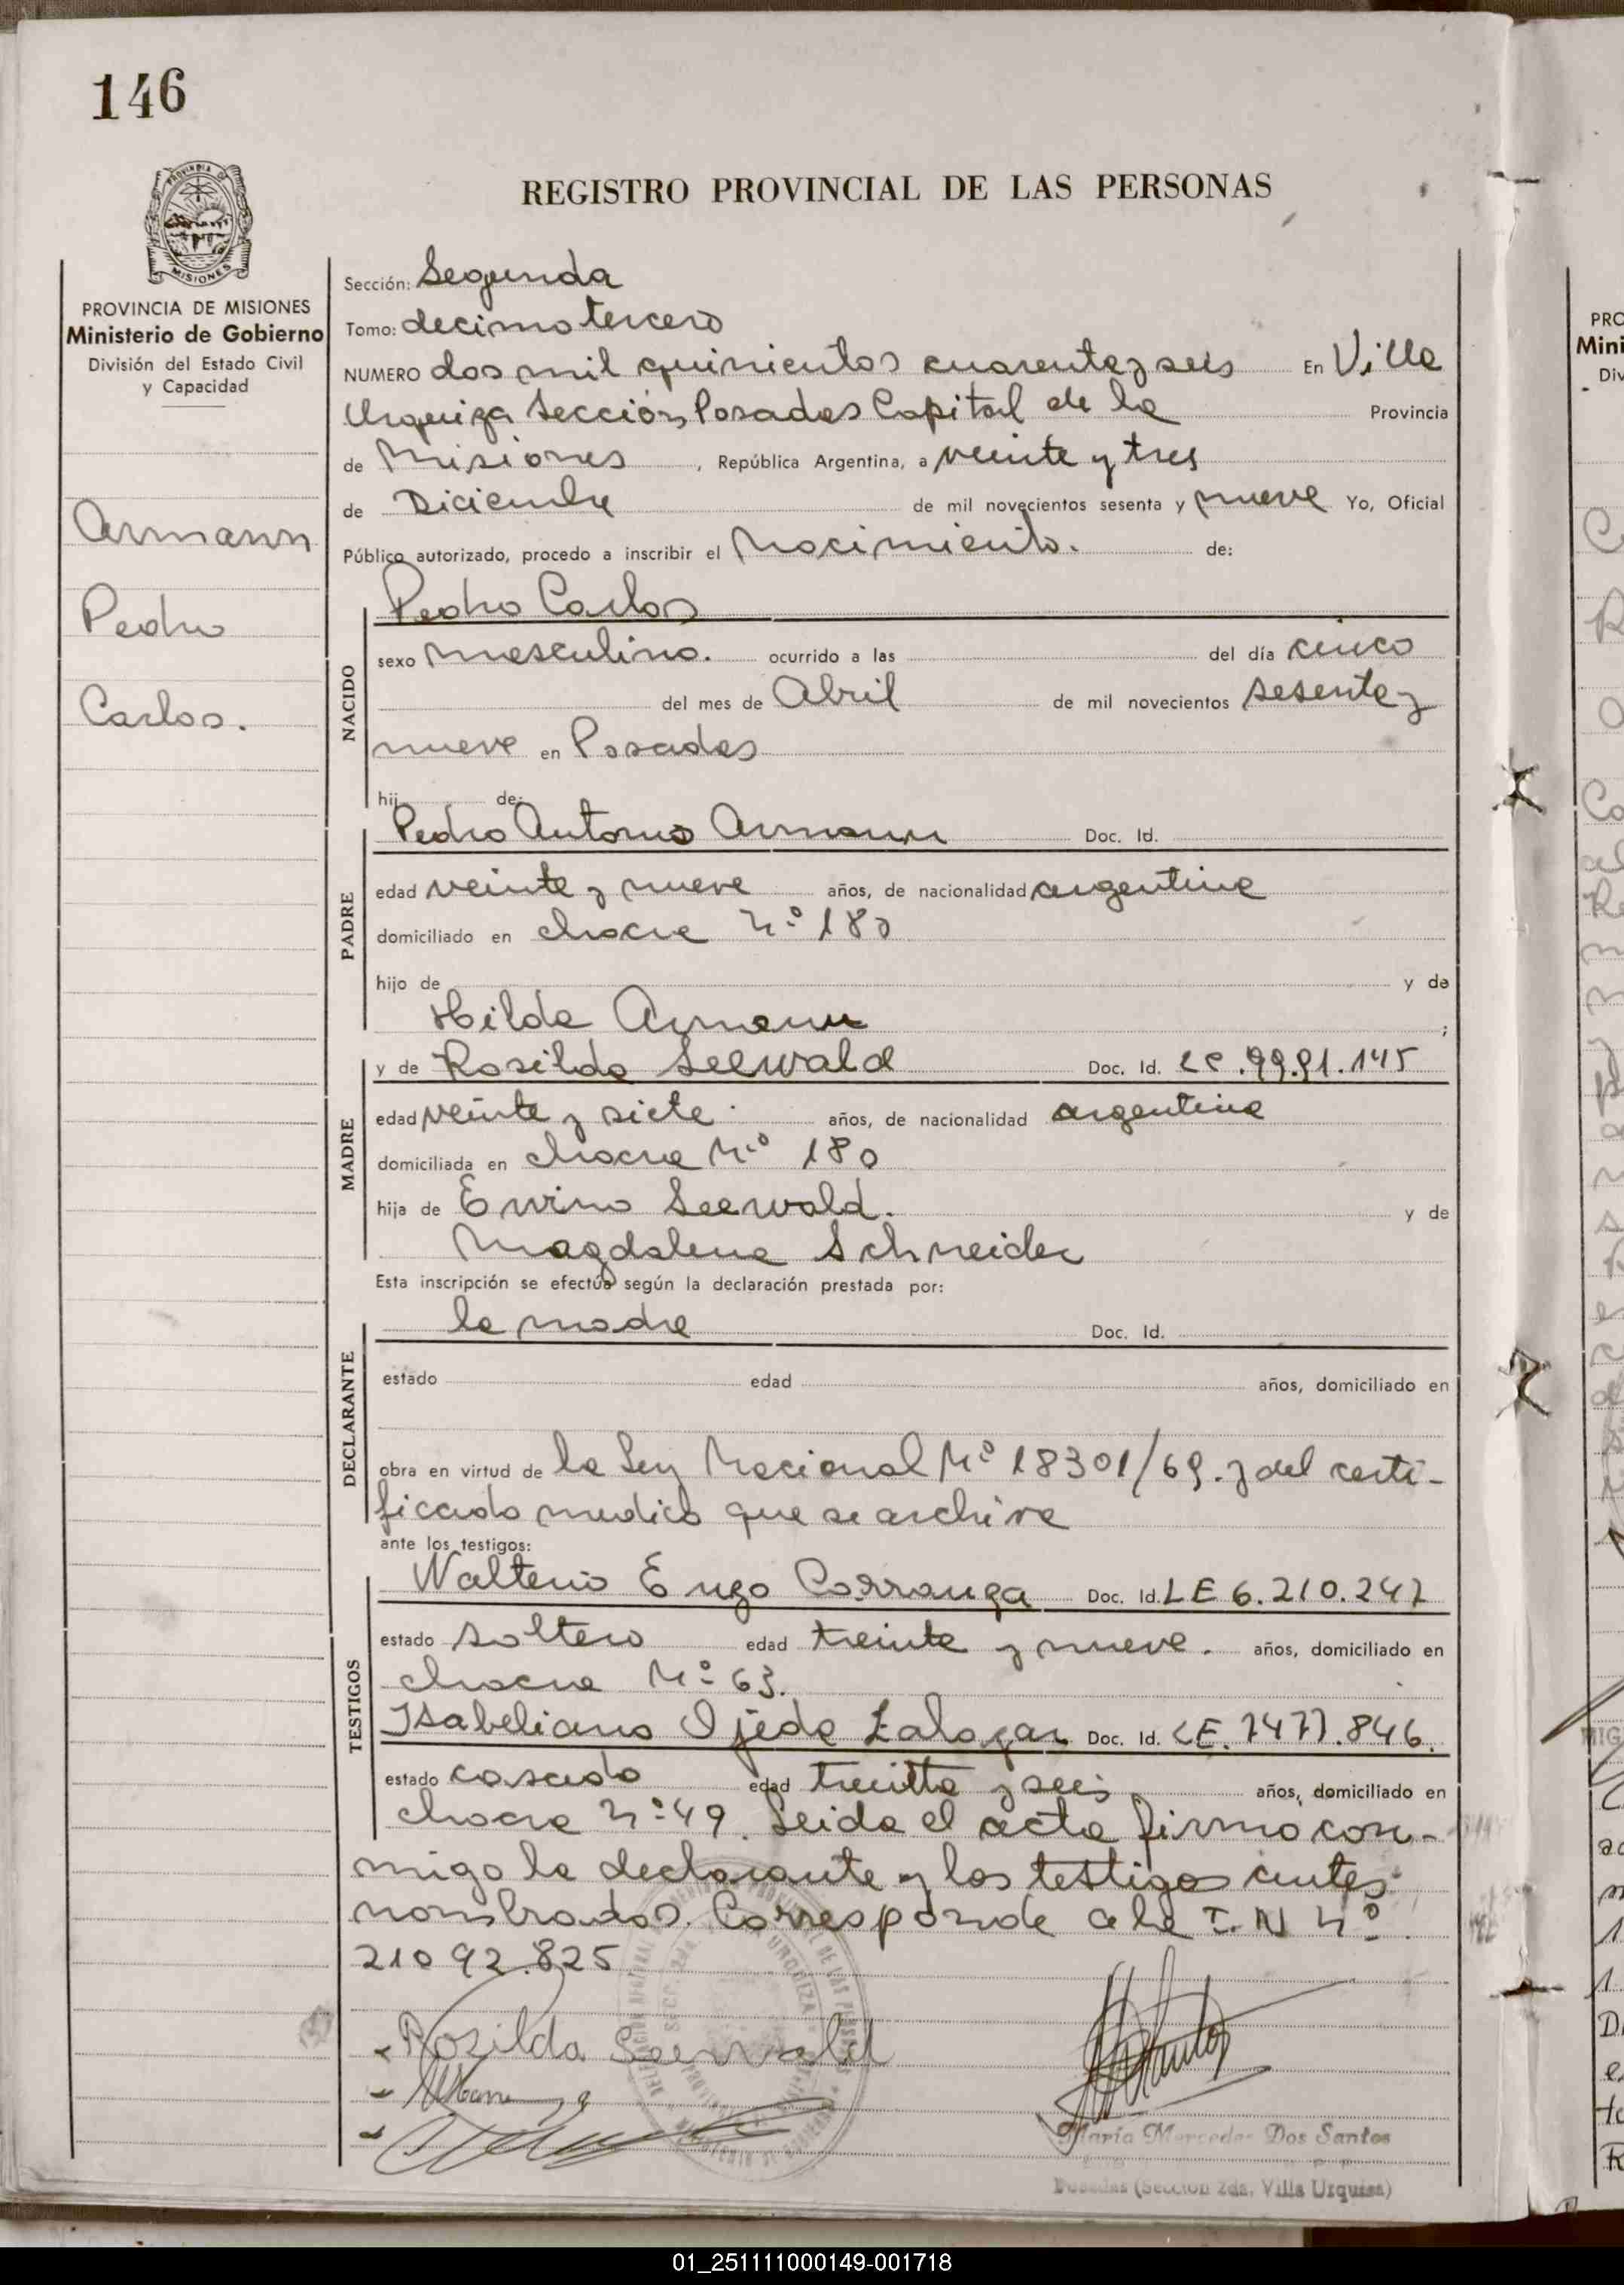 146
REGISTRO PROVINCIAL DE LAS PERSONAS
PROVINCIA DE MISIONES
Ministerio de Gobierno
División del Estado Civil
y Capacidad
Armann
Pedro
Carlos.
Sección: Segunda
Tomo: decimo tercero
NUMERO dos mil quinientos cuarenta y seis En Villa
Urquiza Sección Posadas Capital de la Provincia
de Misiones, República Argentina, a veinte y tres
de Diciembre de mil novecientos sesenta y nueve Yo, Oficial
Público autorizado, procedo a inscribir el Nacimiento. de:
NACIDO
Pedro Carlos
sexo masculino. ocurrido a las del día cinco
del mes de Abril de mil novecientos sesenta y
nueve en Posadas
hij de:
PADRE
Pedro Antonio Armann Doc. Id.
edad veinte y nueve años, de nacionalidad argentina
domiciliado en chacra Nº 180
hijo de y de
Hilda Armann ;
MADRE
y de Rosilda Seewald Doc. Id. LC. 99.91.145
edad veinte y siete años, de nacionalidad argentina
domiciliada en chacra Nº 180
hija de Ervino Seewald. y de
Magdalena Schneider
Esta inscripción se efectúa según la declaración prestada por:
DECLARANTE
la madre Doc. Id.
estado edad años, domiciliado en
obra en virtud de la Ley Nacional Nº 18301/69. y del certi-
ficado medico que se archiva
ante los testigos:
TESTIGOS
Walterio Eugo Doc. Id. LE 6.210.247
estado soltero edad treinta y nueve. años, domiciliado en
chacra Nº 63.
Isabeliano Ojeda Doc. Id. LE. 7477.846.
estado casado edad treinta y seis años, domiciliado en
chacra Nº 49. Leida el acta firmo con-
migo la declarante y los testigos antes
nombrados. Corresponde a la I. N Nº
21092.825
Rosilda Seewald
María Mercedes Dos Santos
Posadas (Seccion 2da. Villa Urquiza)
01_251111000149-001718